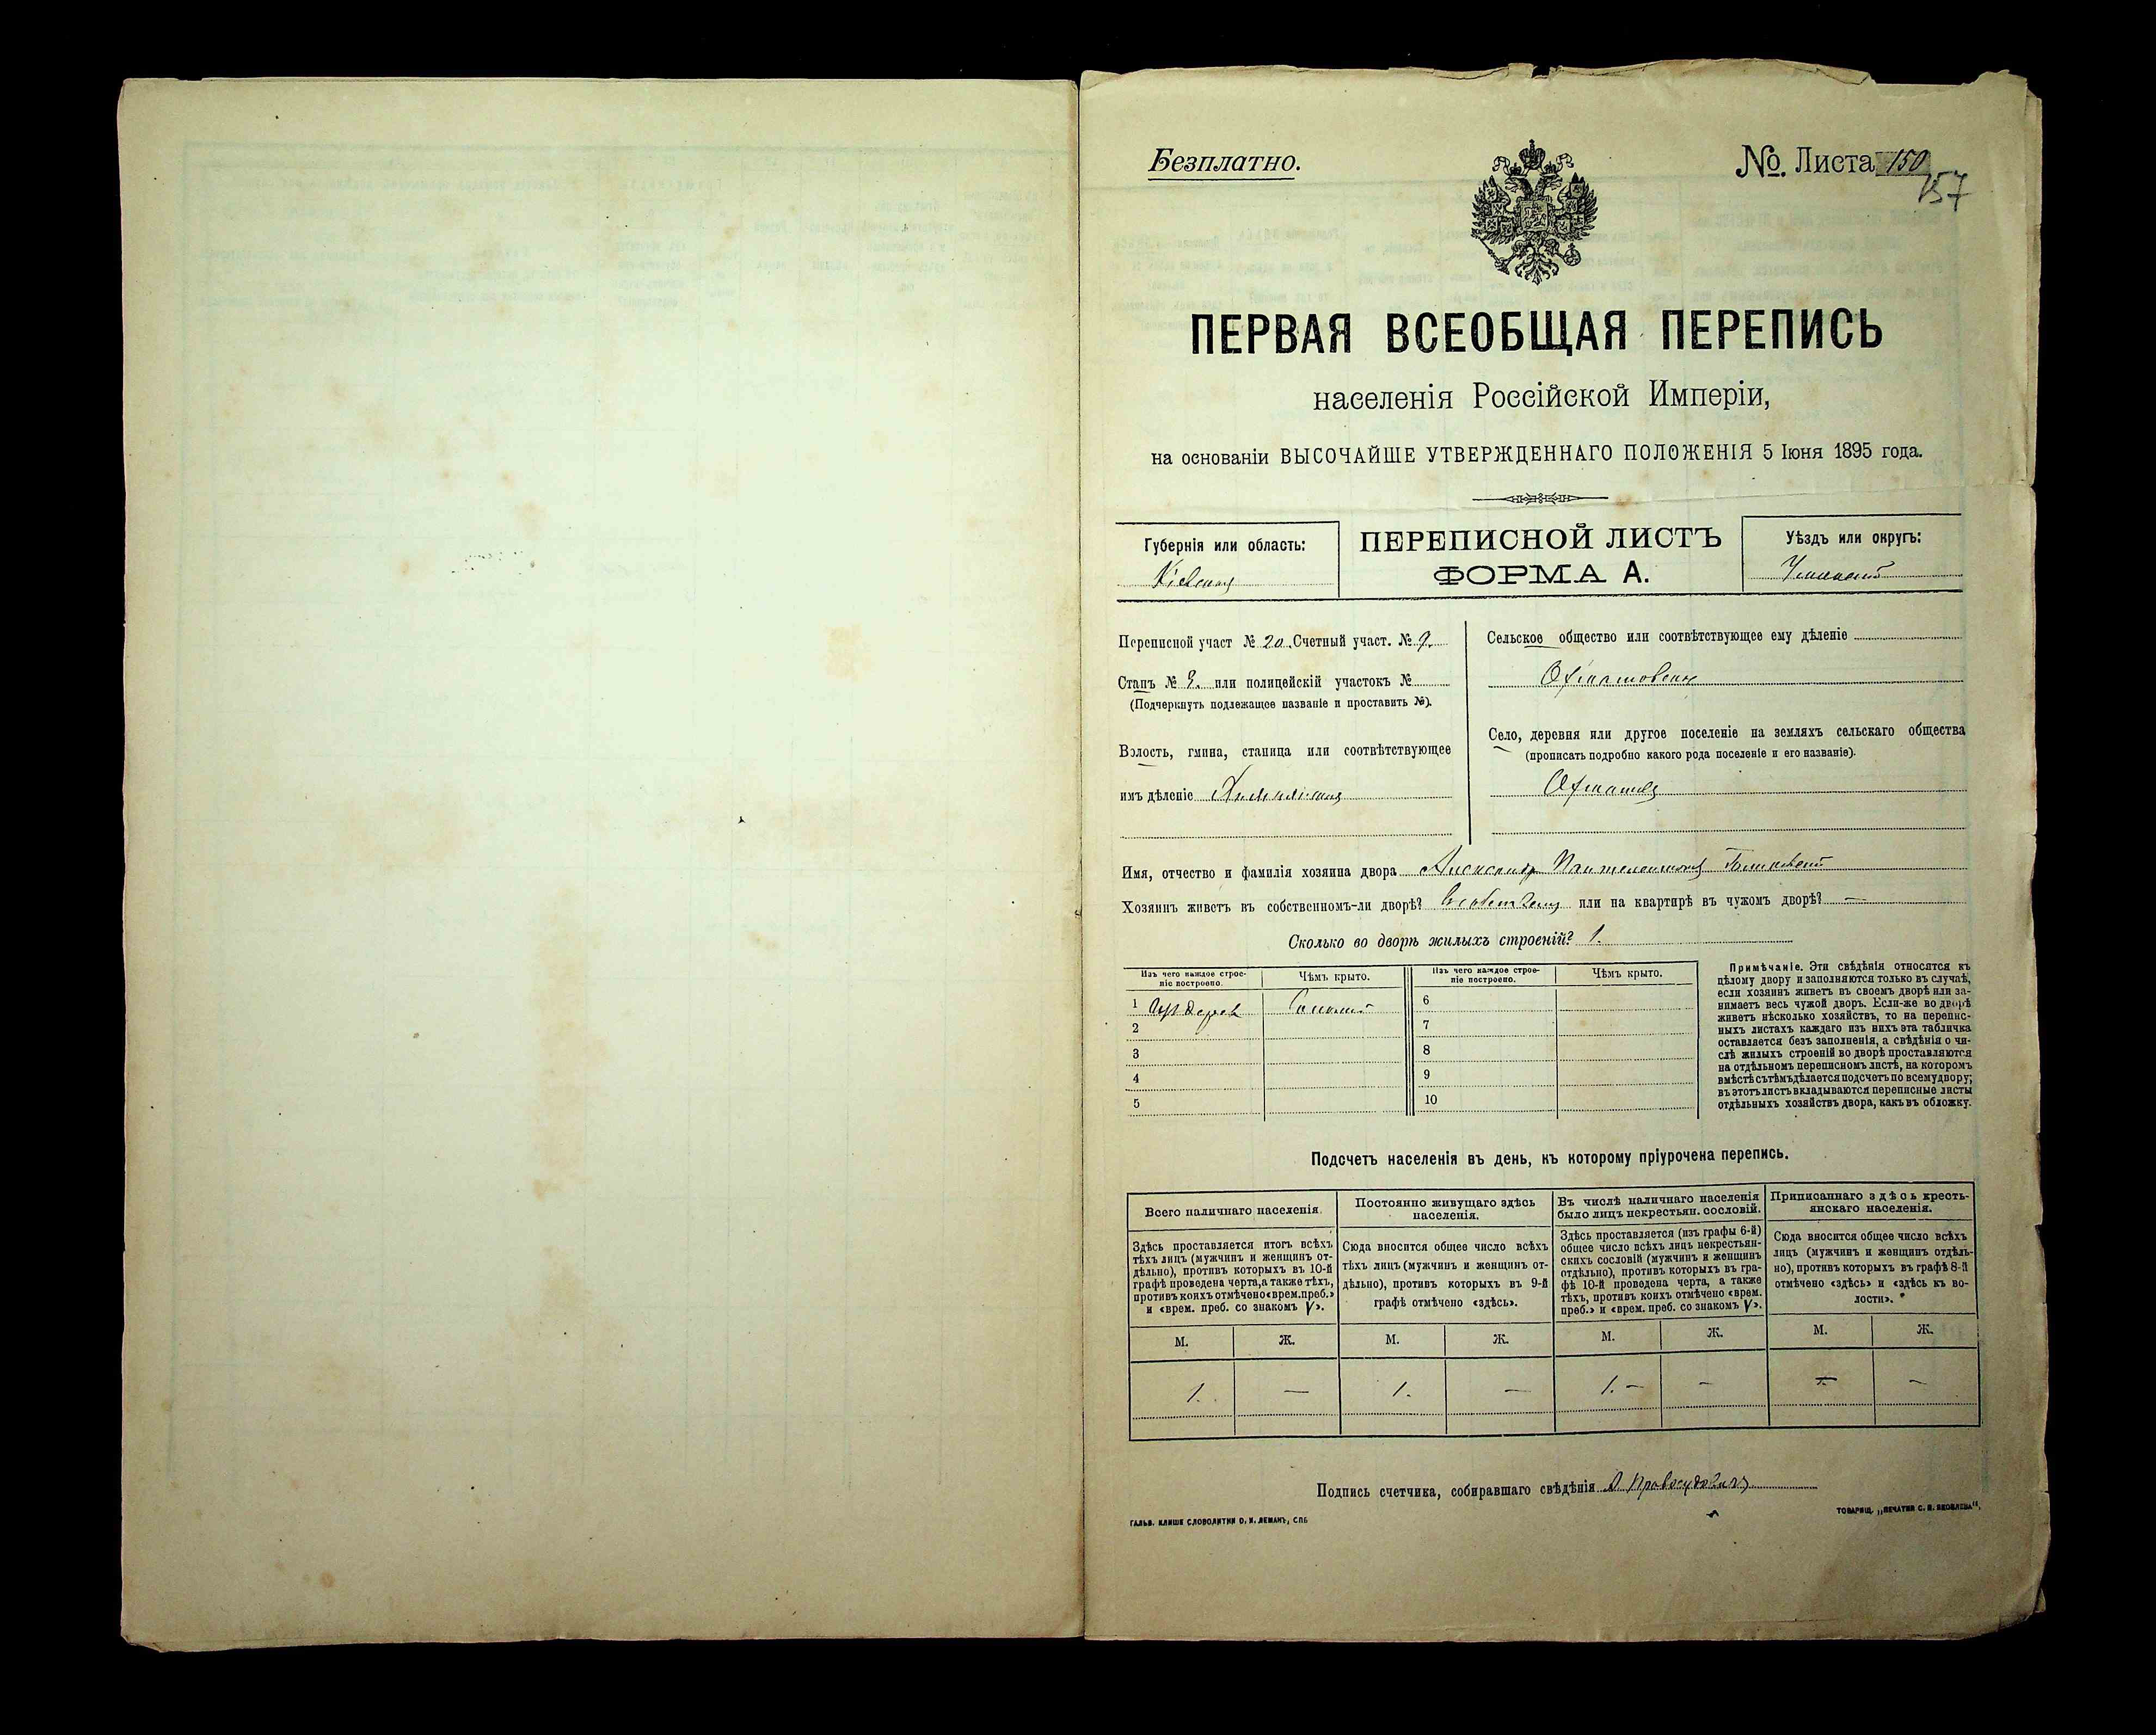 Безплатно.
№. Листа 150
157
ПЕРВАЯ ВСЕОБЩАЯ ПЕРЕПИСЬ
населенія Россійской Имперіи,
на основаніи ВЫСОЧАЙШЕ УТВЕРЖДЕННАГО ПОЛОЖЕНІЯ 5 Іюня 1895 года.
Губернія или область:
Кіевская
ПЕРЕПИСНОЙ ЛИСТЪ
ФОРМА А.
Уѣздъ или округъ:
Уманскій
Переписной участ № 20. Счетный участ. № 9.
Станъ № 3. или полицейскій участокъ №
(Подчеркнуть подлежащее названіе и проставить №).
Волость, гмина, станица или соотвѣтствующее
имъ дѣленіе
Сельское общество или соотвѣтствующее ему дѣленіе
Охматовское
Село, деревня или другое поселеніе на земляхъ сельскаго общества
(прописать подробно какого рода поселеніе и его названіе).
Охматовъ
Имя, отчество и фамилія хозяина двора Александръ Пантелеимоновъ
Хозяинъ живетъ въ собственномъ-ли дворѣ? или на квартирѣ въ чужомъ дворѣ? —
Сколько во дворѣ жилыхъ строеній? 1.
Изъ чего каждое строе-
ніе построено.
Чѣмъ крыто.
Изъ чего каждое строе-
ніе построено.
Чѣмъ крыто.
1 Изъ дерева Соломой
2
3
4
5
6
7
8
9
10
Примѣчаніе. Эти свѣдѣнія относятся къ
цѣлому двору и заполняются только въ случаѣ,
если хозяинъ живетъ въ своемъ дворѣ или за-
нимаетъ весь чужой дворъ. Если-же во дворѣ
живетъ нѣсколько хозяйствъ, то на перепис-
ныхъ листахъ каждаго изъ нихъ эта табличка
оставляется безъ заполненія, а свѣдѣнія о чи-
слѣ жилыхъ строеній во дворѣ проставляются
на отдѣльномъ переписномъ листѣ, на которомъ
вмѣстѣ съ тѣмъ дѣлается подсчетъ по всему двору;
въ этотъ листъ вкладываются переписные листы
отдѣльныхъ хозяйствъ двора, какъ въ обложку.
Подсчетъ населенія въ день, къ которому пріурочена перепись.
Всего наличнаго населенія.
Здѣсь проставляется итогъ всѣхъ
тѣхъ лицъ (мужчинъ и женщинъ от-
дѣльно), противъ которыхъ въ 10-й
графѣ проведена черта, а также тѣхъ,
противъ коихъ отмѣчено «врем. преб.»
и «врем. преб. со знакомъ V».
М. Ж.
1. —
Постоянно живущаго здѣсь
населенія.
Сюда вносится общее число всѣхъ
тѣхъ лицъ (мужчинъ и женщинъ от-
дѣльно), противъ которыхъ въ 9-й
графѣ отмѣчено «здѣсь».
М. Ж.
1. —
Въ числѣ наличнаго населенія
было лицъ некрестьян. сословій.
Здѣсь проставляется (изъ графы 6-й)
общее число всѣхъ лицъ некрестьян-
скихъ сословій (мужчинъ и женщинъ
отдѣльно), противъ которыхъ въ гра-
фѣ 10-й проведена черта, а также
тѣхъ, противъ коихъ отмѣчено «врем.
преб.» и «врем. преб. со знакомъ V».
М. Ж.
1. — —
Приписаннаго здѣсь кресть-
янскаго населенія.
Сюда вносится общее число всѣхъ
лицъ (мужчинъ и женщинъ отдѣль-
но), противъ которыхъ въ графѣ 8-й
отмѣчено «здѣсь» и «здѣсь къ во-
лости».
М. Ж.
— —
Подпись счетчика, собиравшаго свѣдѣнія А Правосудовичъ
ГАЛЬВ. КЛИШЕ СЛОВОЛИТНИ О. И. ЛЕМАНЪ, СПБ
ТОВАРИЩ. „ПЕЧАТНЯ С. П. ЯКОВЛЕВА“.